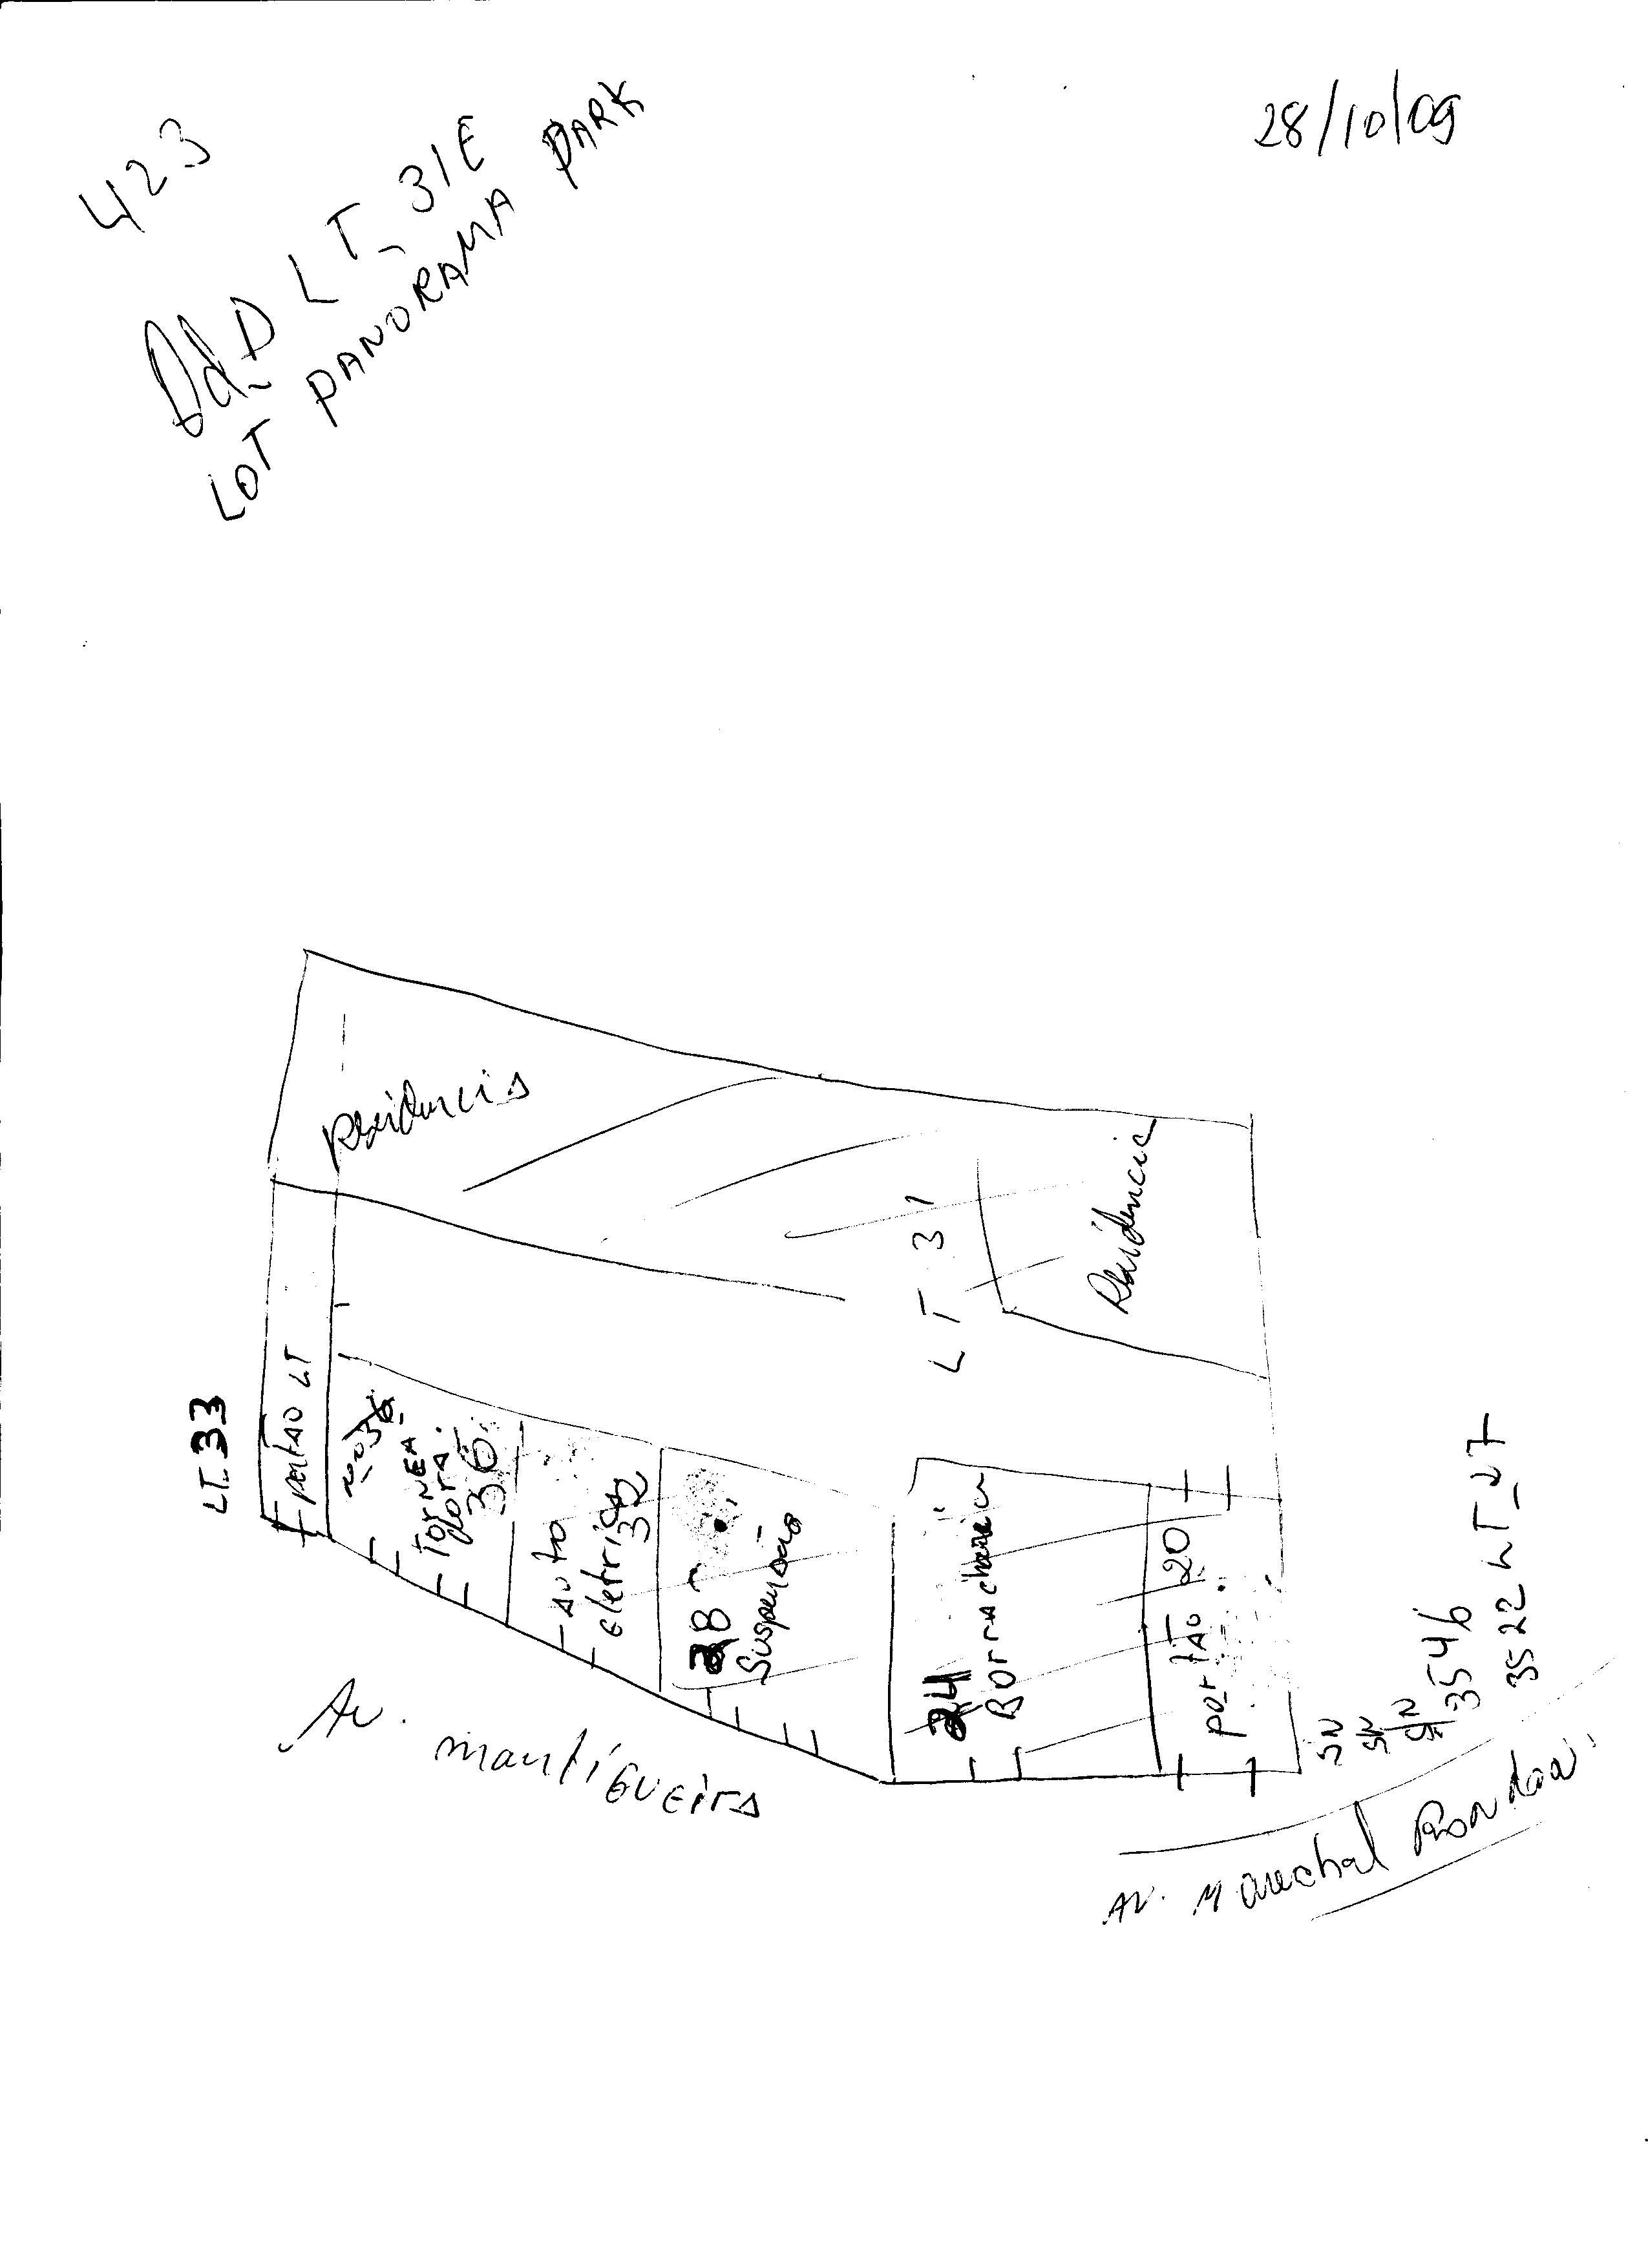 28/10/09
423
Qd. D LT. 31E
LOT PANORAMA PARK
Residencia
Residencia
LT 31
LT. 33
portão LT
nº 36
TORNEA
dora.
36
Auto
eletrica
32
28
Suspensão
24
Borracharia
portão 20
SN
SN
SN
3546
3522 LT_27
Av. mantigueira
Av. Marechal Rondon